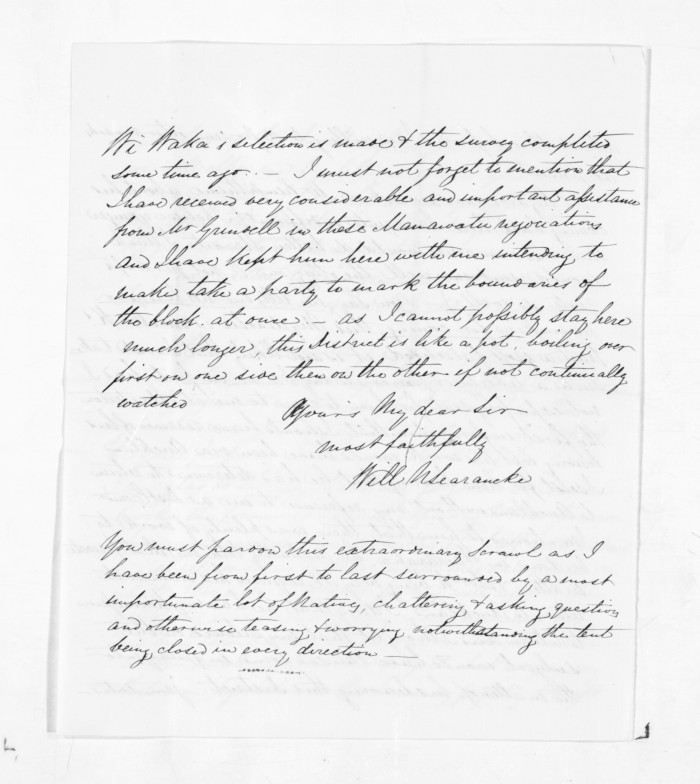 Wi Waka's selection is made & the survey completed
some time ago. — I must not forget to mention that
I have received very considerable and important assistance
from Mr Grindell in these Manawatu negociations
and I have kept him here with me intending to
make take a party to mark the boundaries of
the block. at once. — as I cannot possibly stay here
much longer, this District is like a pot, boiling over
first on one side then on the other if not continually
watched
Yours My dear Sir
most faithfully
Will N Searancke
You must pardon this extraordinary Scrawl as I
have been from first to last surrounded by a most
importunate lot of Natives, chattering & asking questions
and otherwise teasing & worrying notwithstanding the tent
being closed in every direction —